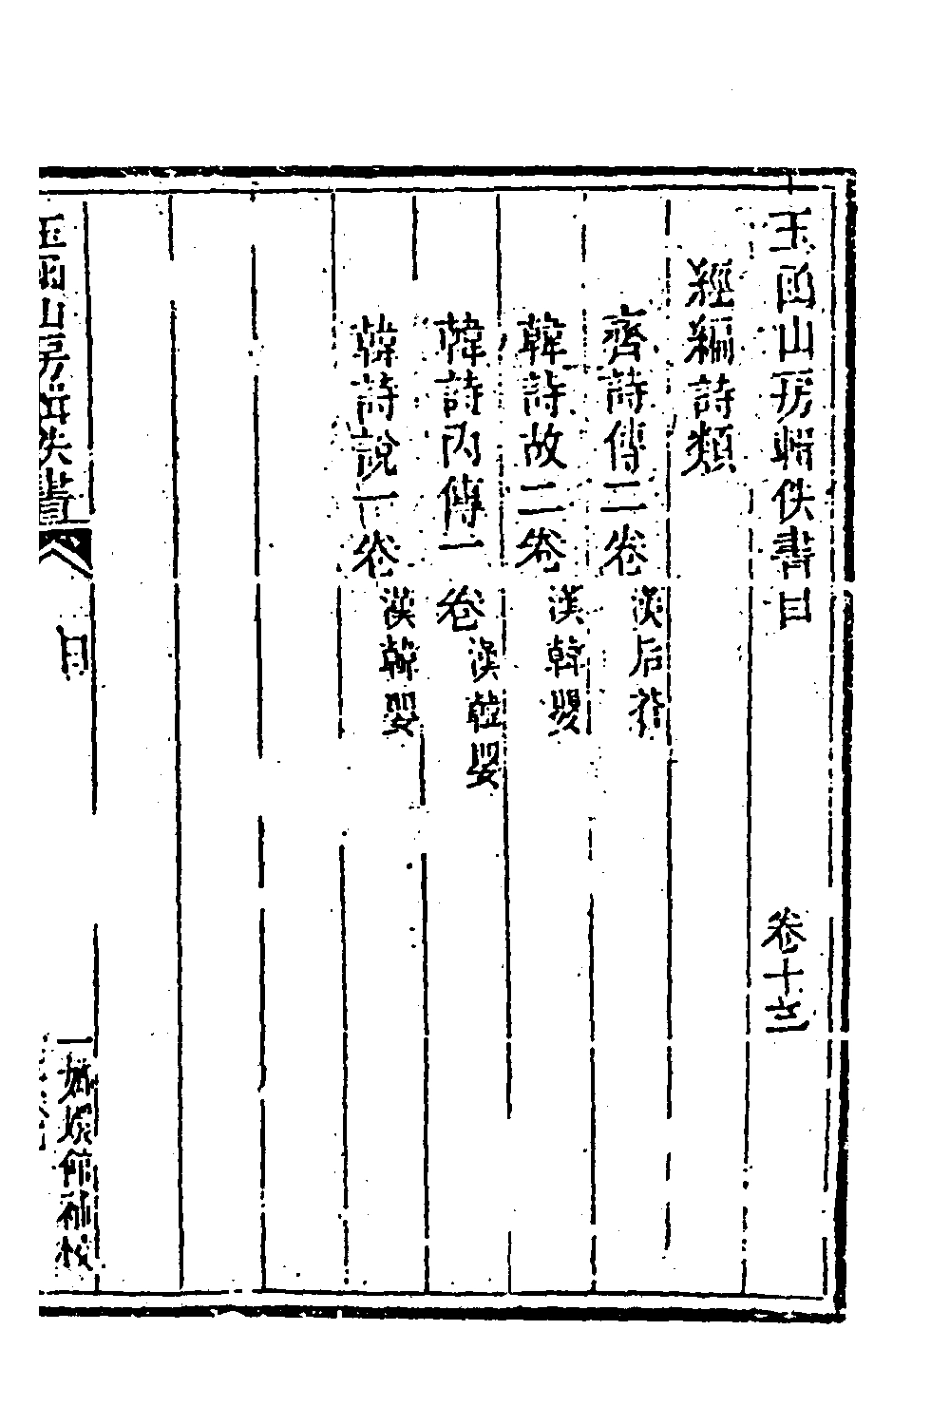 玉函山房輯佚書目 卷十三
經編詩類
齊詩傳二卷 漢后蒼
韓詩故二卷 漢韓嬰
韓詩內傳一卷 漢韓嬰
韓詩說一卷 漢韓嬰
玉函山房輯佚書 目 一 嫏嬛館補校